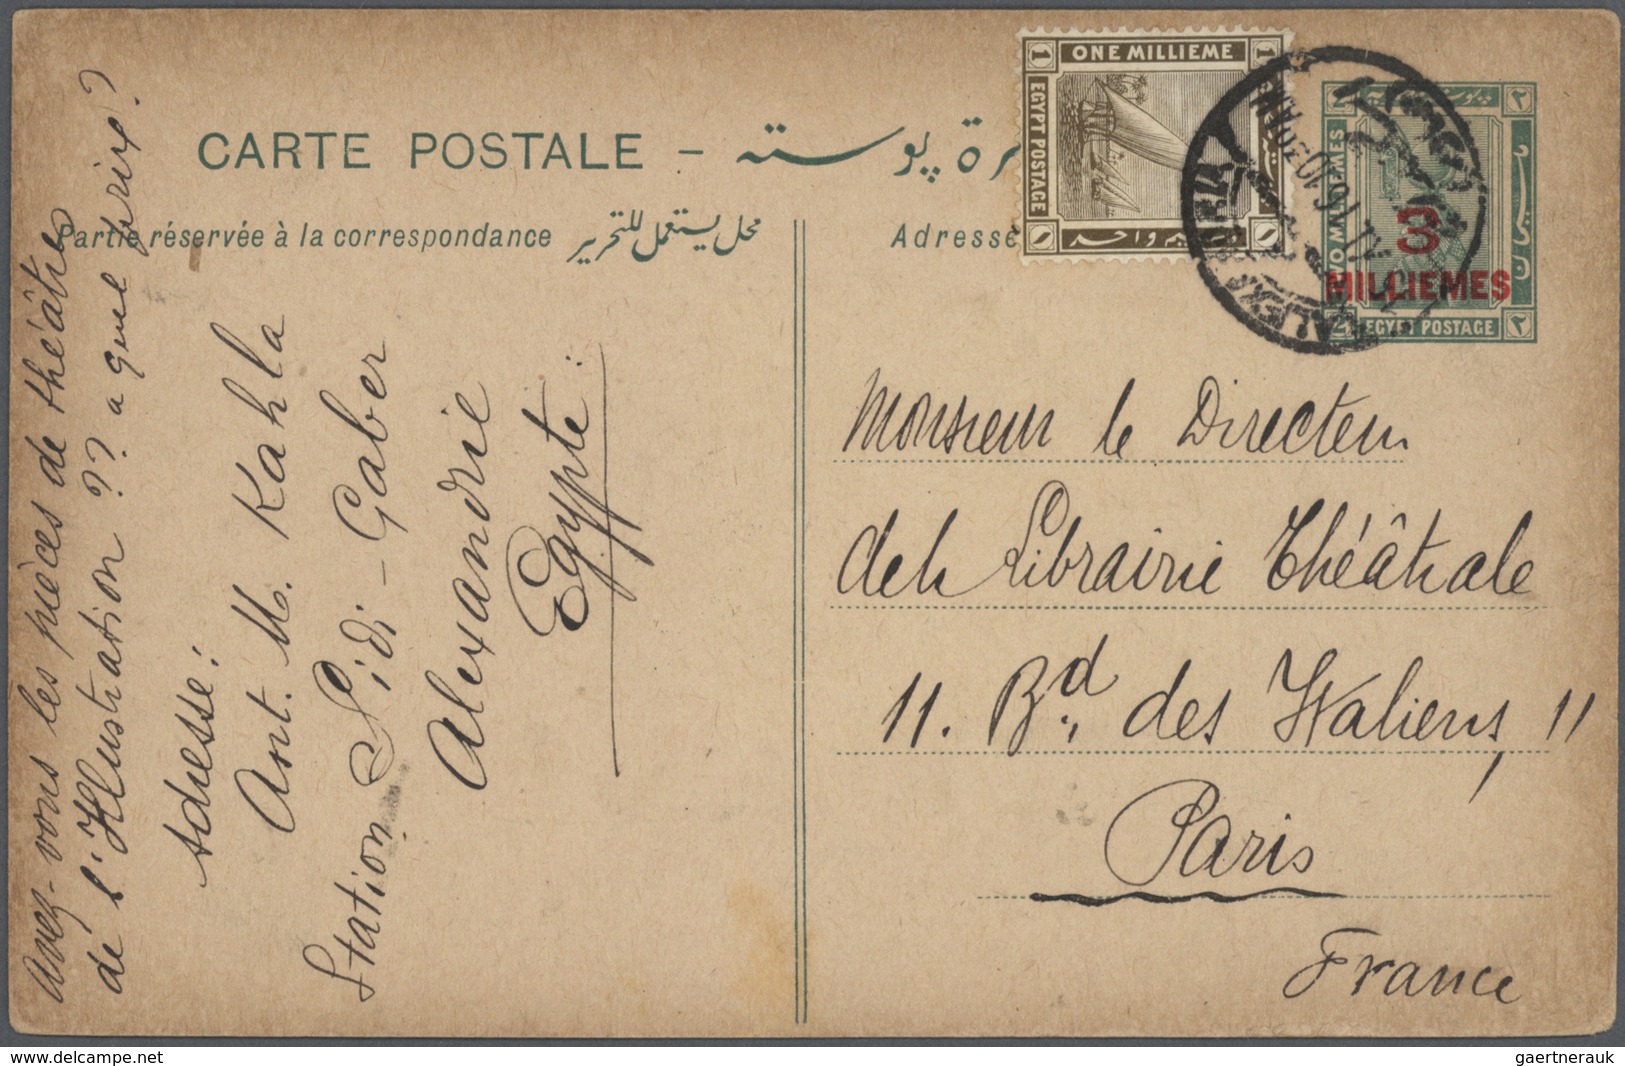 CARTE POSTALE –
پوسته
Partie réservée à la correspondance
محل يستعمل للتحرير
Adresse
1 ONE MILLIEME 1
EGYPT POSTAGE
TWO MILLIEMES
3
MILLIEMES
EGYPT POSTAGE
Avez-vous les pièces de théâtre
de l'Illustration ?? a quel prix?
Adresse:
Ant. M. Kahla
Station Sidi-Gaber
Alexandrie
Egypte
Monsieur le Directeur
de la Librairie Théâtrale
11. Bd. des Italiens, 11
Paris
France
www.delcampe.net
gaertnerauk